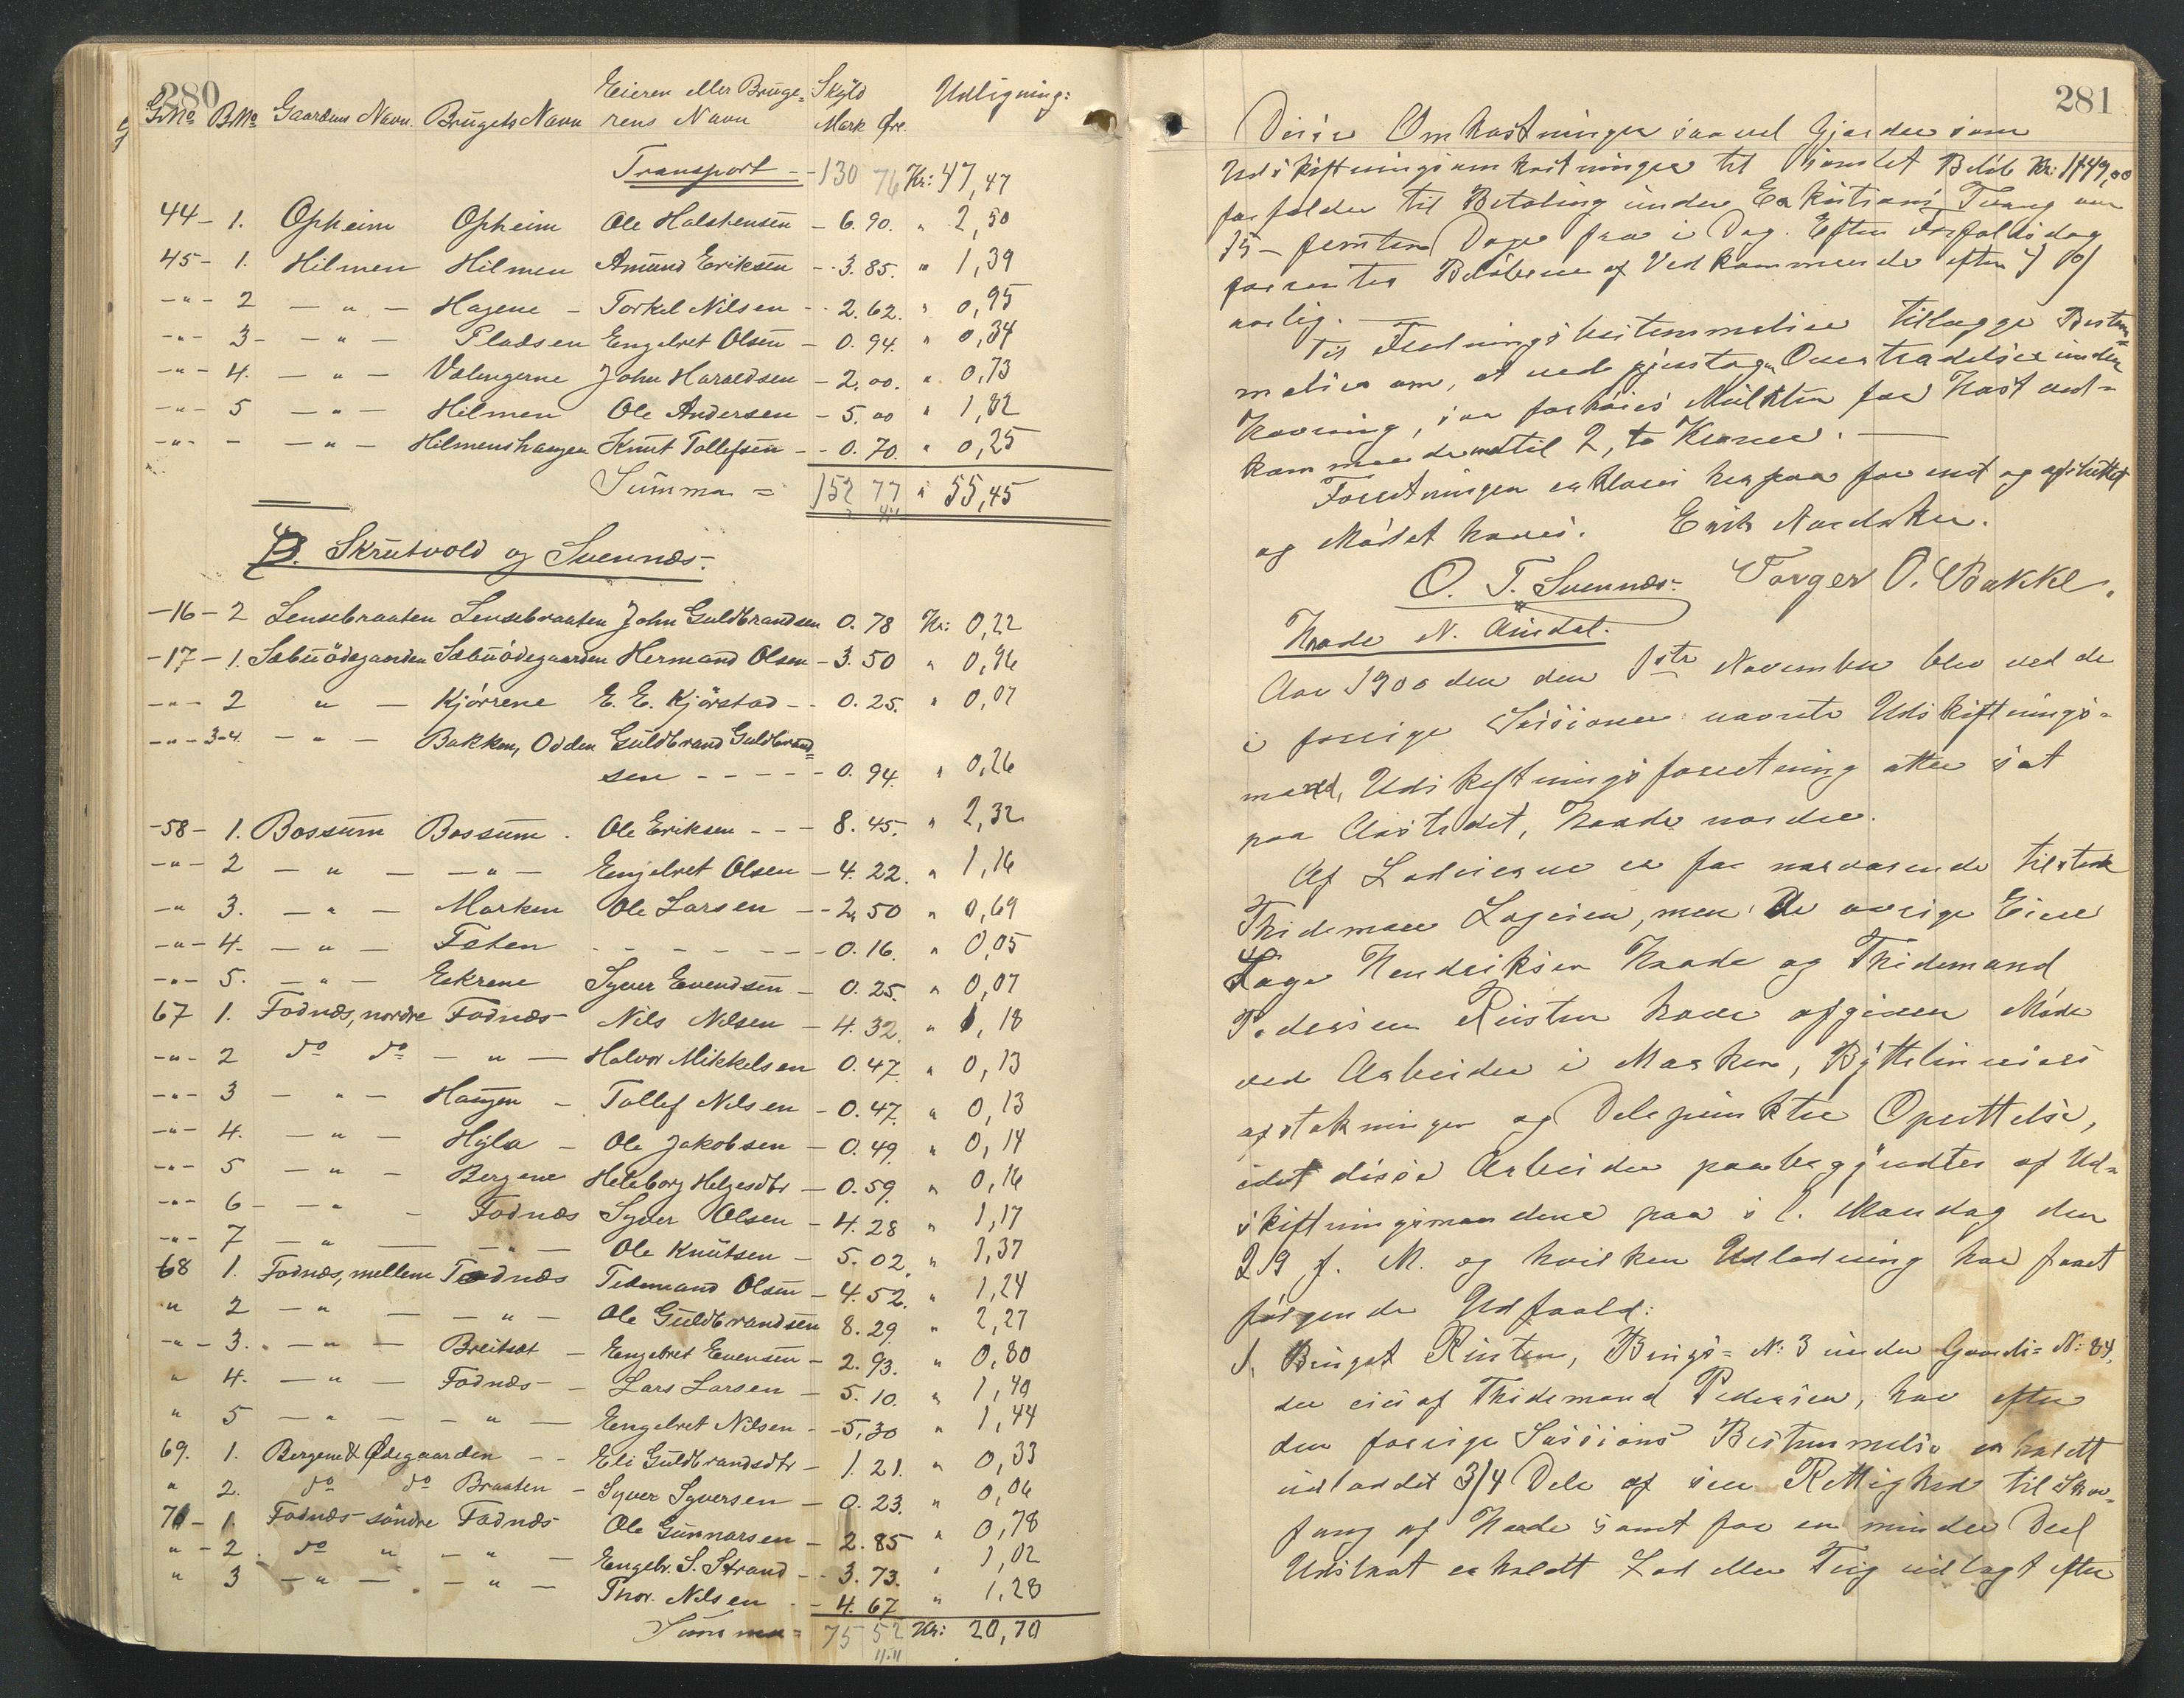 280
G.No B.No Gaardens Navn. Brugets Navn Eieren eller Bruge= Skyld Udligning:
rens Navn Mark Øre.
Transport - 130 76 Kr: 47,47
44 - 1. Opheim Opheim Ole Halstensen - 6.90. " 2,50
45 - 1. Hilmen Hilmen Amund Eriksen - 3.85. " 1,39
-"- 2 - " - Hagene - Torkel Nilsen - 2.62. " 0,95
-"- 3 - - " - Pladsen Engebret Olsen - 0.94. " 0,34
-"- 4. - " - Valingerne John Haraldsen - 2.00. " 0,73
-"- 5 - " - Hilmen Ole Andersen - 5.00 " 1,82
-"- - - " - Hilmenshaugen Knut Tollefsen - 0.70. " 0,25
Summa = 152 77 " 55,45
B. Skrutvold og Svennæs.
-16 - 2 Lensebraaten Lensebraaten John Guldbrandsen 0.78 Kr: 0,22
-17 - 1. Sæbuödegaarden Sæbuödegaarden Hermand Olsen - 3.50 " 0,96
-"- 2 " - Kjörrene E. E. Kjörstad - - 0.25. " 0,07
-"- 3-4. - " - Bakken, Odden Guldbrand Guldbrand=
sen - - - - - 0.94. " 0,26
-58 - 1. Bossum Bossum. Ole Eriksen - - - 8.45. " 2,32
-"- 2 - " - - " - Engebret Olsen - 4.22. " 1,16
-" 3. - " - Marken Ole Larsen - - 2,50 " 0,69
-"- 4. - " - Teten - - - - - - - 0.16. " 0,05
-"- 5. - " - Eekrene Syver Evendsen - 0.25. " 0,07
67 1. Fodnæs, nordre Fodnæs Nils Nilsen - 4.32. " 1,18
-"- 2 do do - " - Halvor Mikkelsen 0.47. " 0,13
-"- 3 - " - Haugen - Tollef Nilsen - 0.47. " 0,13
-"- 4. - " - Hylla - Ole Jakobsen - 0.49. " 0,14
-"- 5 - " - Bergene Heleborg Helgesdtr - 0.59. " 0,16
-"- 6 - - " - Fodnæs Syver Olsen - 4.28 " 1,17
-"- 7 - " - - " - Ole Knutsen - 5.02. " 1,37
68 1. Fodnæs, mellem Fodnæs Tidemand Olsen - 4.52. " 1,24
" 2 - " - - " - Ole Guldbrandsen 8.29. " 2,27
-"- 3. - " - Breitset - Engebret Evensen - 2.93. " 0,80
" 4. - " - Fodnæs - Lars Larsen - 5.10. " 1,40
" 5 - " - - " - Engebret Nilsen - 5,30 " 1,44
69. 1. Bergene & Ødegaarden - - Eli Guldbrandsdtr - 1.21. " 0,33
" 2. do do Braaten - Syver Syversen - 0.23. " 0,06
70 - 1. Fodnæs söndre Fodnæs Ole Gunnarsen - 2.85 " 0,78
" - 2. do " - " - Engebr. S. Strand - 3.73. " 1,02
" 3 - " - - " - Thor. Nilsen - 4.67 " 1,28
Summa = 75 52 Kr: 20,70
281
Disse Omkostninger saavel Gjerder som
Udskiftningsomkostninger til samlet Belöb Kr:
forfalder til Betaling under Exkutions Tvang
15 - femten Dage fra i Dag. Efter Forfaldsdag
forrentes Belöbene af Vedkommende efter
aarlig.
Til Fredningsbestemmelsen tillægges Bestem=
melse om, at ved gjentagen Overtrædelse under
Havning, saa forhöies Mulkten for Hest ved=
kommende indtil 2, to Kroner.
Forretningen erklæres herpaa for endt og afsluttet
og Mödet hæves. Erik Nordaker.
O. T. Svennæs. Torger O. Bakke.
Haade N. Aurdal.
Aar 1900 den den 1ste November blev ved de
i forrige Session nævnte Udskiftnings=
mænd, Udskiftningsforretning atter sat
paa Aastedet, Haade nordre.
Af Lodeierne er for nærværende tilstede
Thidemann Lagesen, men de övrige Eiere
Lage Hendriksen Haade og Thidemand
Pedersen Rusten have afgiven Möde
ved Arbeider i Marken, Byttelinieers
afstakninger og Delepunkters Oprettelse,
idet disse Arbeider paabegyndtes af Ud=
skiftningsmændene paa s l. Mandag den
29 f. M. og hvilken Udlodning har faaet
følgende Udfald:
1. Bruget Rusten, Brugs= N: 3 under Gaards= N: 84,
der eies af Thidemand Pedersen, har efter
den forrige Sessions Bestemmelse erholdt
udloddet 3/4 Dele af sin Rettighed til Hav=
fang af Haade samt for en mindre Deel
Udslaat erholdt Lod eller Teig udlagt efter